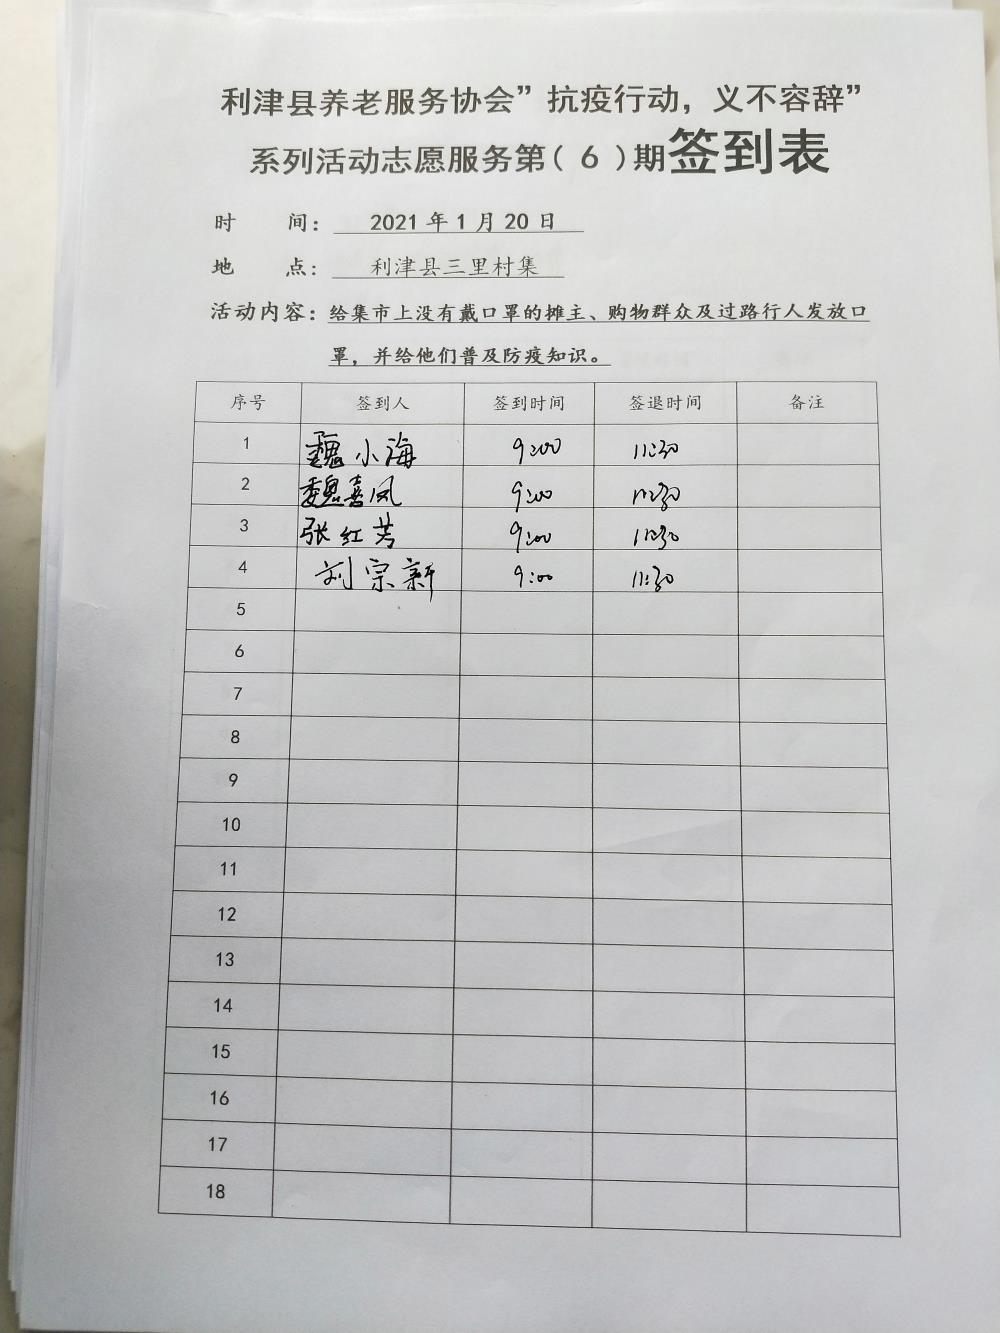 利津县养老服务协会”抗疫行动，义不容辞”
系列活动志愿服务第（ 6 ）期签到表
时 间： 2021 年 1 月 20 日
地 点： 利津县三里村集
活动内容：给集市上没有戴口罩的摊主、购物群众及过路行人发放口
罩，并给他们普及防疫知识。
序号 签到人 签到时间 签退时间 备注
1 魏小海 9:00 11:30
2 魏喜凤 9:00 11:30
3 张红芳 9:00 11:30
4 刘宗新 9:00 11:30
5
6
7
8
9
10
11
12
13
14
15
16
17
18